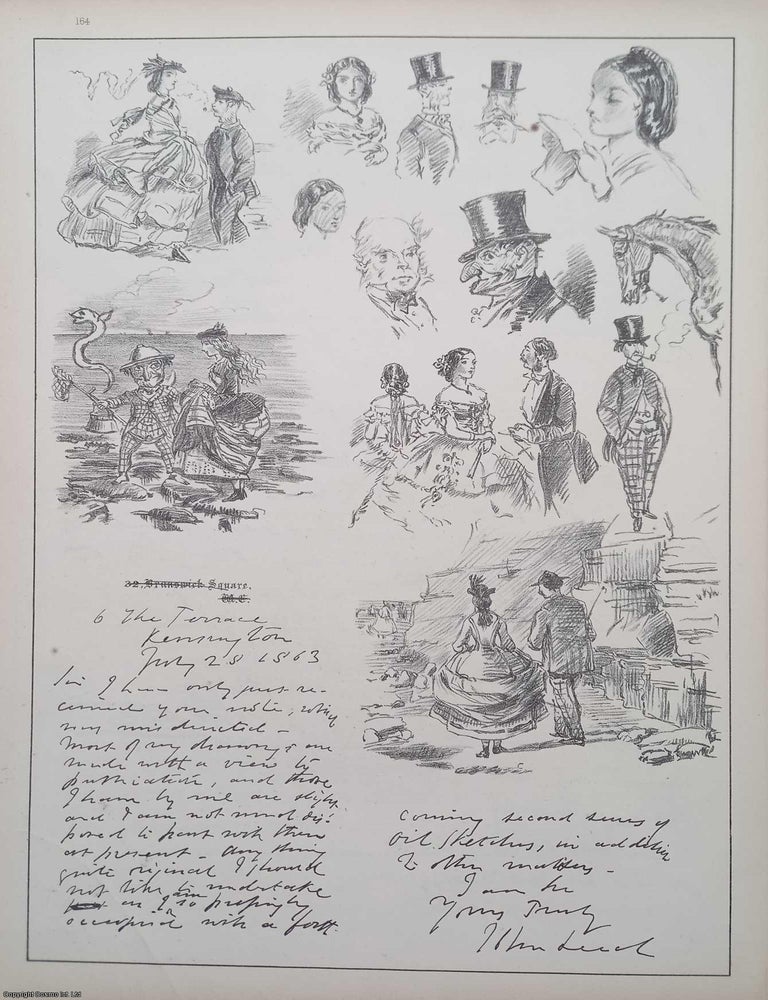 164
32, Brunswick Square.
W.C.
6 The Terrace
Kensington
July 28 1863
Sir I have only just re-
ceived your note, which
was misdirected –
Most of my drawings are
made with a view to
publication, and those
I have by me are slight
and I am not much dis-
posed to part with them
at present – any thing
quite original I should
not like to undertake
as I am so pressingly
occupied with a forth
coming second series of
Oil Sketches, in addition
to other matters –
I am Sir
Yours Truly
John Leech
Copyright Cosmo Int. Ltd